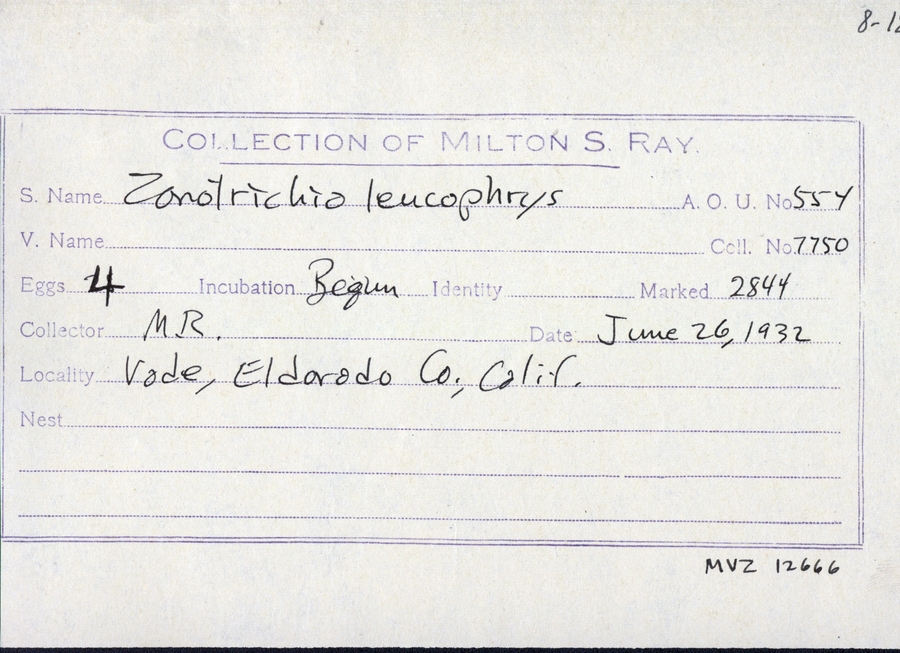 8-12
COLLECTION OF MILTON S. RAY.
S. Name Zonotrichia leucophrys A. O. U. No 554
V. Name Coll. No. 7750
Eggs 4 Incubation Begun Identity Marked 2844
Collector M R. Date June 26, 1932
Locality Vade, Eldorado Co., Calif.
Nest
MVZ 12666